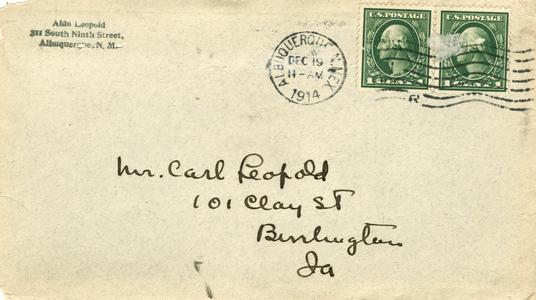 Aldo Leopold
311 South Ninth Street,
Albuquerque, N. M.
ALBUQUERQUE, N. MEX.
DEC 19
11-AM
1914
U.S. POSTAGE
1 CENTS 1
U.S. POSTAGE
1 CENTS 1
R
Mr. Carl Leopold
101 Clay ST
Burlington
Ia